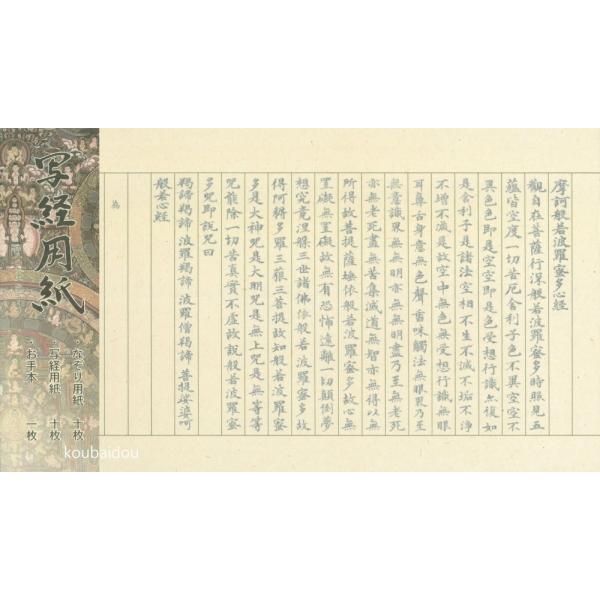 摩訶般若波羅蜜多心経
觀自在菩薩行深般若波羅蜜多時照見五
蘊皆空度一切苦厄舍利子色不異空空不
異色色即是空空即是色受想行識亦復如
是舍利子是諸法空相不生不滅不垢不浄
不増不減是故空中無色無受想行識無眼
耳鼻舌身意無色聲香味觸法無眼界乃至
無意識界無無明亦無無明盡乃至無老死
亦無老死盡無苦集滅道無智亦無得以無
所得故菩提薩埵依般若波羅蜜多故心無
罣礙無罣礙故無有恐怖遠離一切顛倒夢
想究竟涅槃三世諸佛依般若波羅蜜多故
得阿耨多羅三藐三菩提故知般若波羅蜜
多是大神呪是大明呪是無上呪是無等等
呪能除一切苦真實不虚故説般若波羅蜜
多呪即説呪曰
羯諦羯諦 波羅羯諦 波羅僧羯諦 菩提娑婆呵
般若心経
為
写経用紙
・なぞり用紙 十枚
・写経用紙 十枚
・お手本 一枚
koubaidou